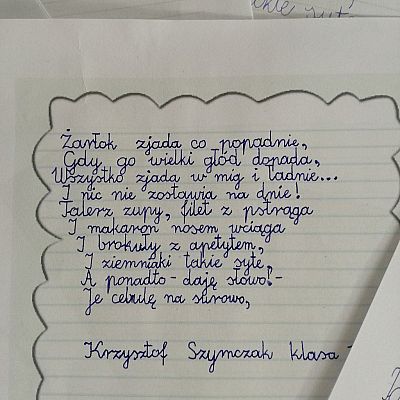 Żarłok zjada co popadnie,
Gdy go wielki głód dopada,
Wszystko zjada w mig i ładnie...
I nic nie zostawia na dnie!
Talerz zupy, filet z pstrąga
I makaron nosem wciąga
I brokuły z apetytem,
I ziemniaki takie syte,
A ponadto - daję słowo! -
Je cebulę na surowo,
Krzysztof Szymczak klasa